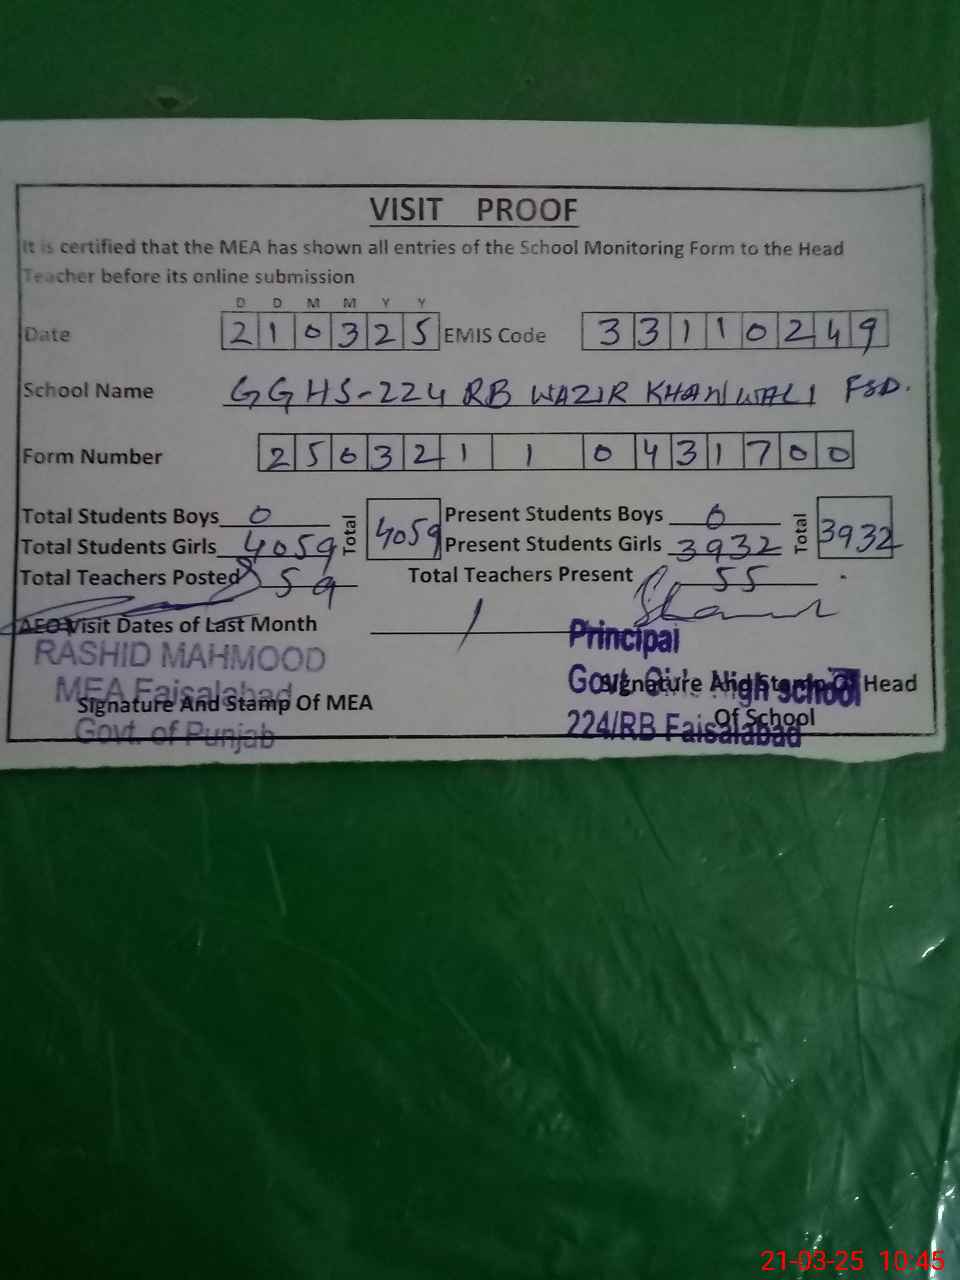 VISIT PROOF
It is certified that the MEA has shown all entries of the School Monitoring Form to the Head
Teacher before its online submission
D D M M Y Y
Date 2 1 0 3 2 5 EMIS Code 3 3 1 1 0 2 4 9
School Name GGHS-224 RB WAZIR KHAN WALI FSD.
Form Number 2 5 0 3 2 1 1 0 4 3 1 7 0 0
Total Students Boys 0 Total 4059 Present Students Boys 0 Total 3932
Total Students Girls 4059 Present Students Girls 3932
Total Teachers Posted 59 Total Teachers Present 55
AEO Visit Dates of Last Month /
RASHID MAHMOOD
MEA Faisalabad
Signature And Stamp Of MEA
Govt. of Punjab
Principal
Govt. Girls High school
Signature And Stamp Of Head
Of School
224/RB Faisalabad
21-03-25 10:45